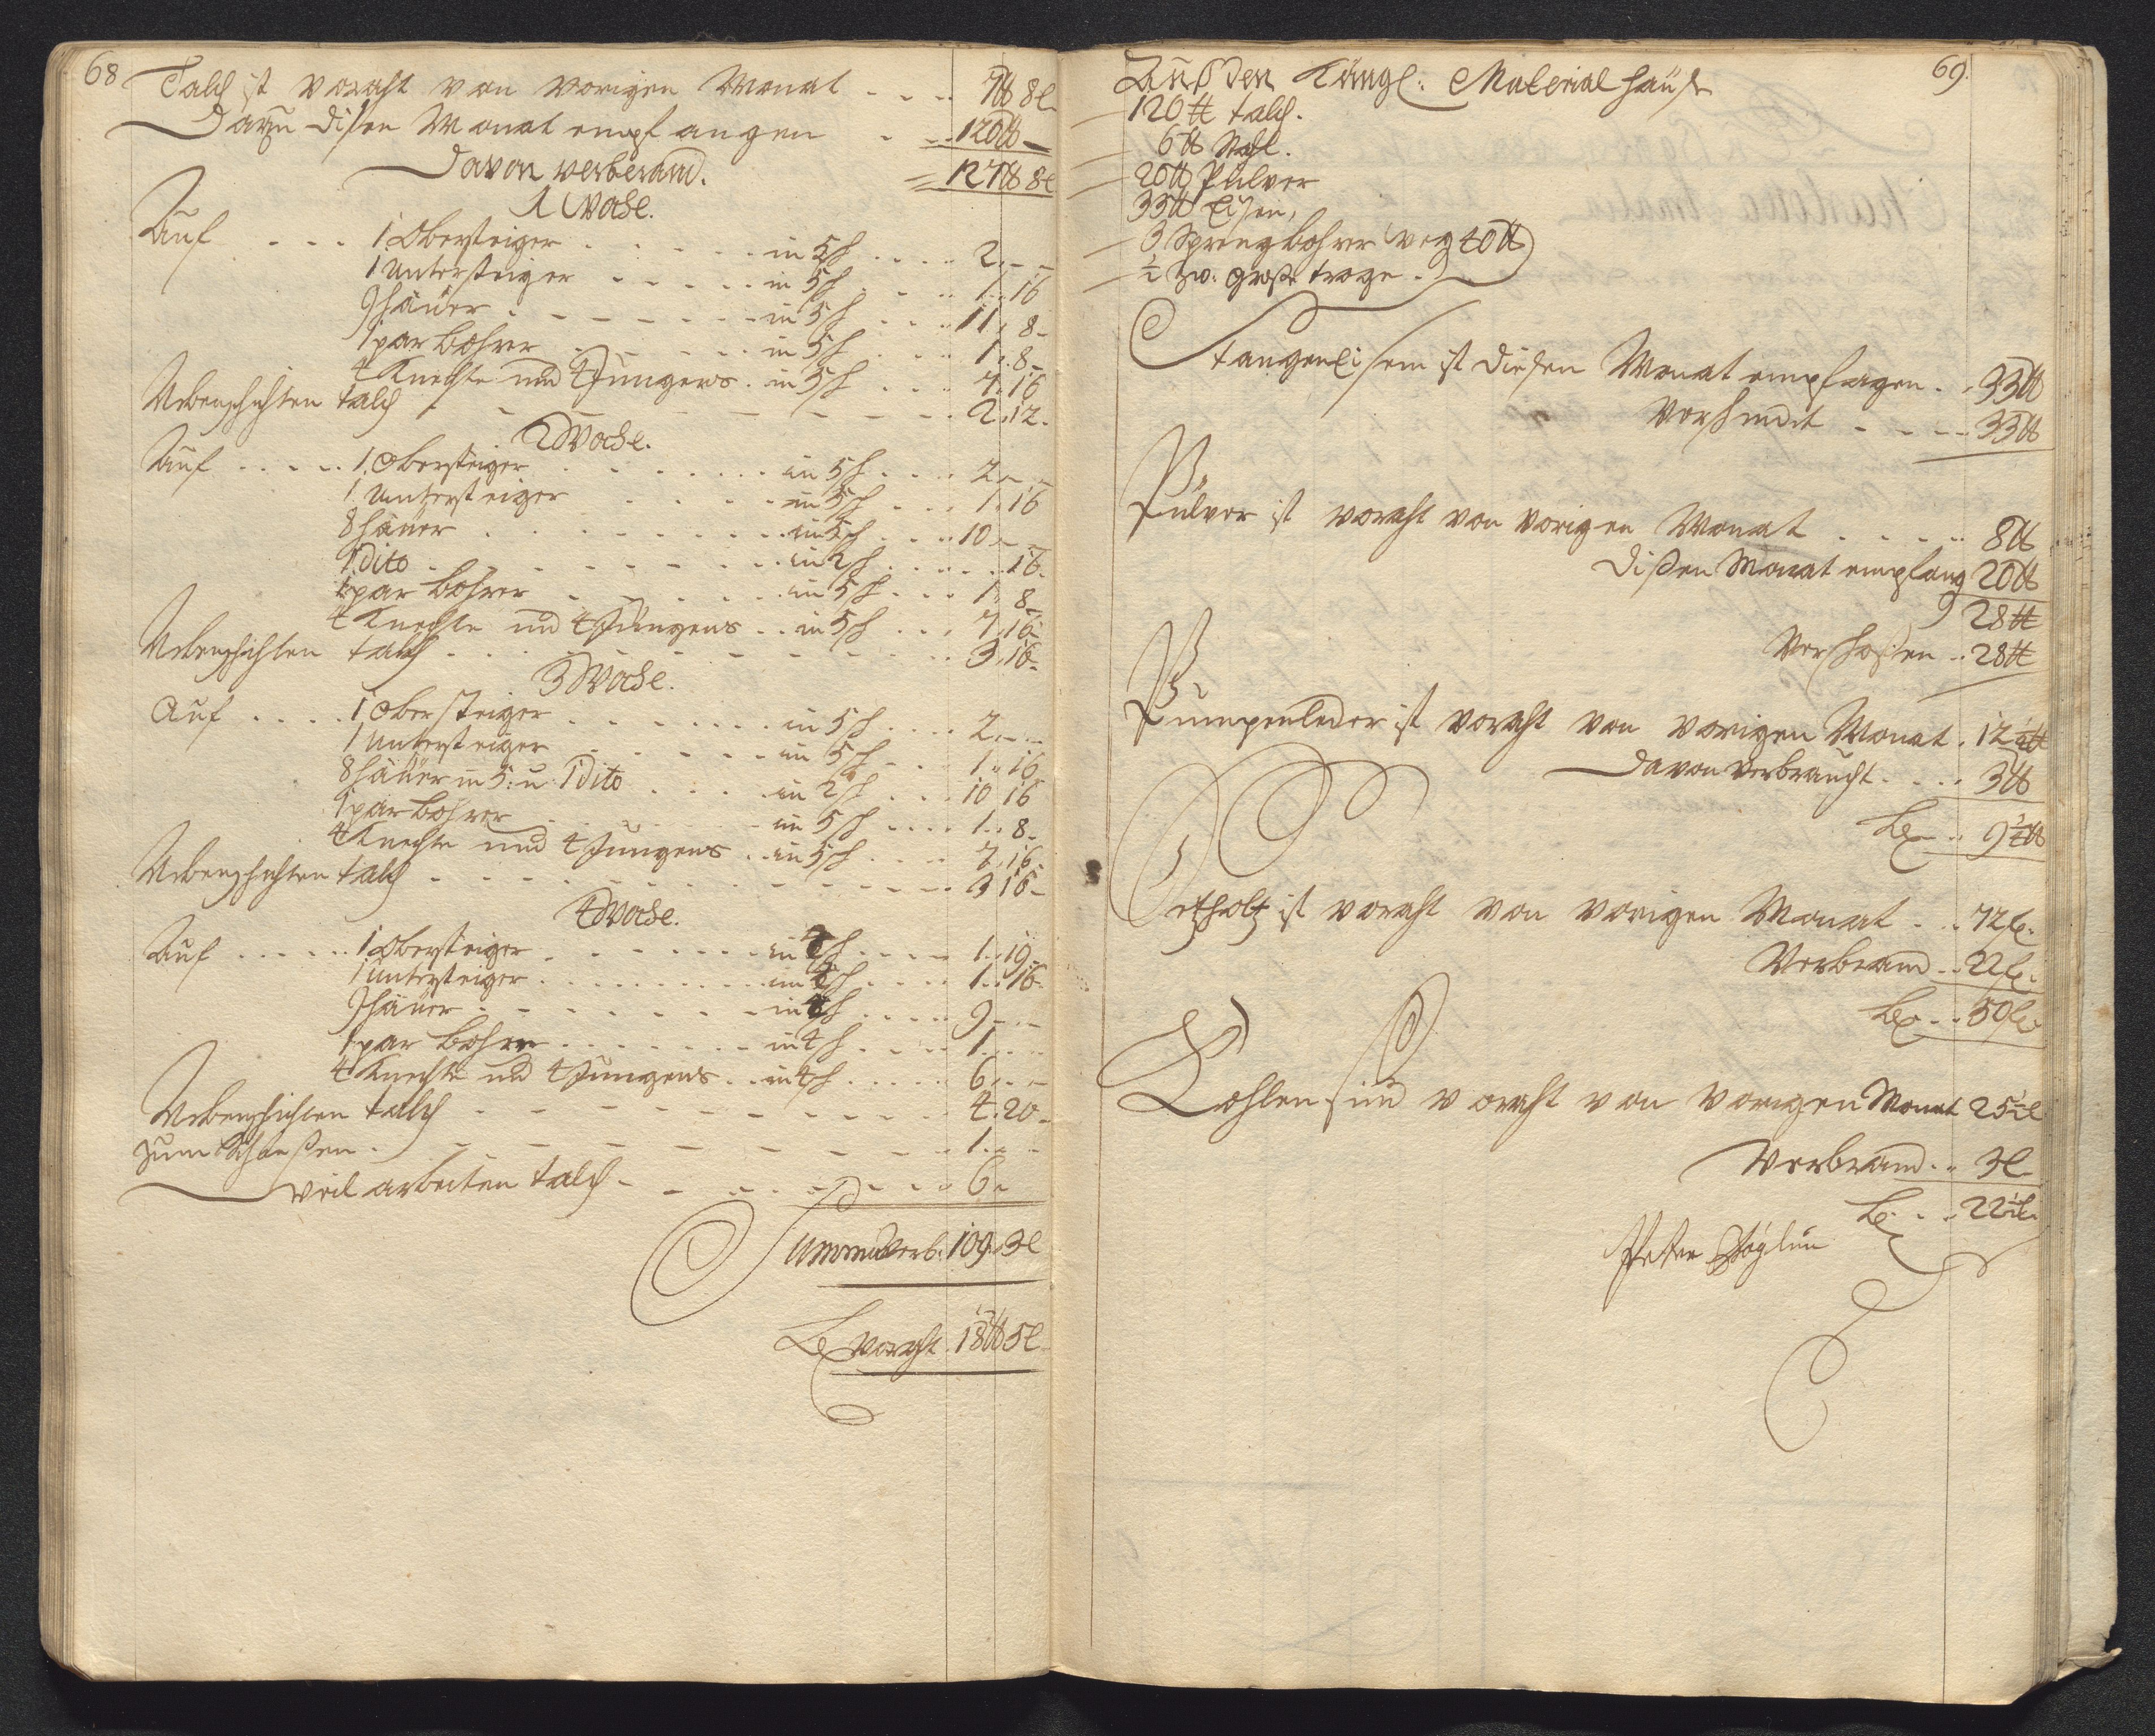 68
Talch ist voraht von vorigen Monat - - - 7 ℔ 8 l
Darzu dißen Monat empfangen - - - 120 ℔ -
Davon verberand. 127 ℔ 8 l
1 Woche.
Auf - - - 1 Obersteiger - - - - - in 5 sch - - - 2 - -
1 Untersteiger - - - - - in 5 sch - - - 1 - 16
9 häuer - - - - - - in 5 sch - - - 11 - 8 -
1 par bohrer - - - - - in 5 sch - - - 1 - 8 -
4 Knechte und 4 Jungens - in 5 sch - - - 7 - 16
Nebenschichten talch - - - - - - - - - 2 - 12 -
2 Woche.
Auf - - - - 1 Obersteiger - - - - - in 5 sch - - - 2 - - -
1 Untersteiger - - - - in 5 sch - - - 1 - 16
8 häuer - - - - - - in 5 sch - - - 10 - -
1 dito - - - - - - - in 2 sch - - - - - 16 -
1 par bohrer - - - - - in 5 sch - - - 1 - 8 -
4 Knechte und 4 Jungens - - in 5 sch - - - 7 - 16 -
Nebenschichten talch - - - - - - - - - 3 - 16 -
3 Woche.
Auf - - - - 1 Obersteiger - - - - - - in 5 sch - - - 2 - - -
1 Untersteiger - - - - - in 5 sch - - - 1 - 16
8 häuer in 5: u: 1 dito - - - in 2 sch - - - 10 16
1 par bohrer - - - - - in 5 sch - - - - 1 - 8 -
4 Knechte und 4 Jungens - in 5 sch - - - 7 - 16 -
Nebenschichten talch - - - - - - - - - - 3 16 -
4 Woche.
Auf - - - - - 1 Obersteiger - - - - - - in 4 sch - - - - 1 - 19 -
1 Untersteiger - - - - - - in 4 sch - - - - 1 - 16 -
9 häuer - - - - - - - in 4 sch - - - - 9 - - -
1 par bohrer - - - - - - in 4 sch - - - 1 - - -
4 Knechte und 4 Jungens - - in 4 sch - - - - 6 - - -
Nebenschichten talch - - - - - - - - - 4 - 20 -
zum Schießen - - - - - - - - - 1 - - -
weil arbeiten talch - - - - - - - - 6 -
Summa Verb: 109 - 3 l
voraht 18 ℔ 5 l
69.
Auß den Königl: Material hauße
120 ℔ talch.
6 ℔ Stahl.
20 ℔ Pulver
33 ℔ Eisen,
3 Sprengbohrer weg 40 ℔
½ zw. große troge.
Stangen Eisen ist dießen Monat empfagen - - 33 ℔
Verschmidt - - - - 33 ℔
Pulver ist voraht von vorigen Monat - - - - 8 ℔
dißen Monat empfang 20 ℔
28 ℔
Verschoßen - - 28 ℔
Pumpenleder ist voraht von vorigen Monat - 12 ¼ ℔
Davon verbraucht - - - 3 ℔
9 ¼ ℔
Setzholtz ist voraht von vorigen Monat - - 72 f.
Verbrand - - 22 f.
50 f.
Kohlen sind voraht von vorigen Monat 25 ½ l
Verbrand - - 3 l
22 ½ l
Peter